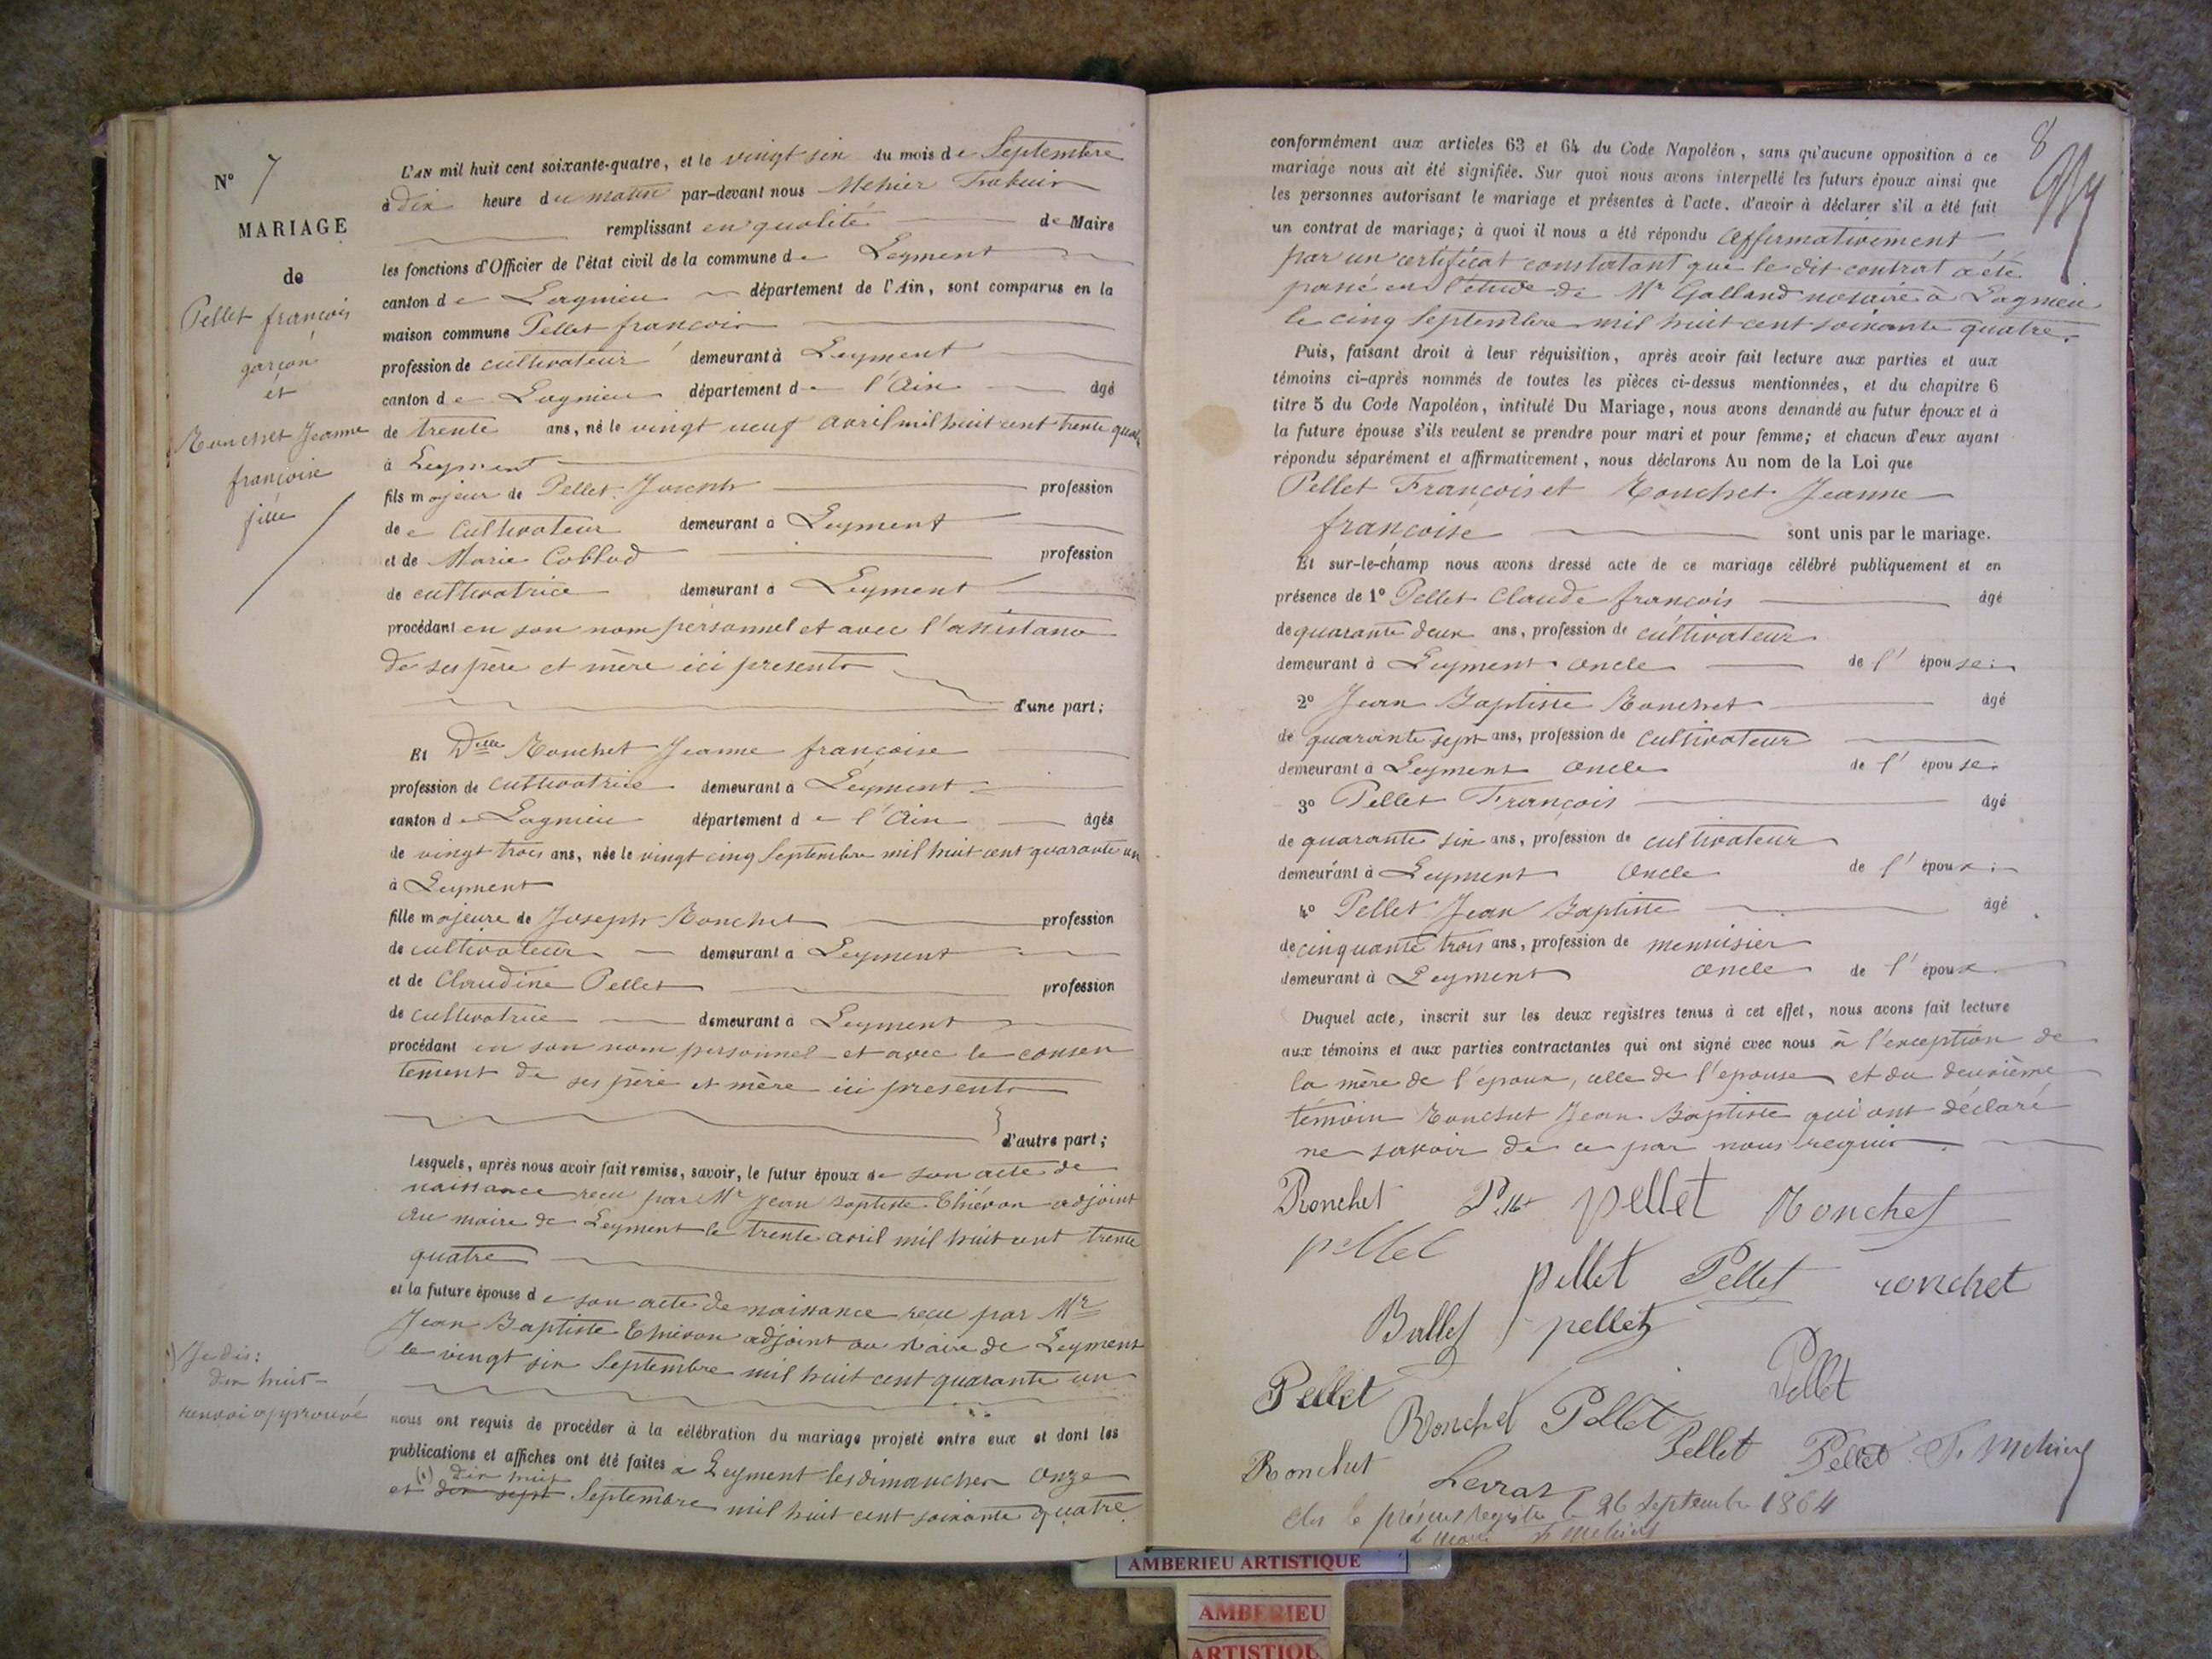 N° 7
MARIAGE
de
Pellet françois
garçon
et
Ronchet Jeanne
françoise
fille
L'AN mil huit cent soixante-quatre, et le vingt six du mois de Septembre
à dix heure du matin par-devant nous Mehier
remplissant en qualité de Maire
les fonctions d'Officier de l'état civil de la commune de Leyment
canton de Lagnieu département de l'Ain, sont comparus en la
maison commune Pellet françois
profession de cultivateur demeurant à Leyment
canton de Lagnieu département de l'Ain âgé
de trente ans, né le vingt neuf avril mil huit cent trente quatre
à Leyment
fils majeur de Pellet Joseph profession
de cultivateur demeurant à Leyment
et de Marie profession
de cultivatrice demeurant à Leyment
procédant en son nom personnel et avec l'assistance
de ses père et mère ici presents
d'une part;
Et Dlle Ronchet Jeanne françoise
profession de cultivatrice demeurant à Leyment
canton de Lagnieu département de l'Ain âgés
de vingt trois ans, née le vingt cinq Septembre mil huit cent quarante un
à Leyment
fille majeure de Joseph Ronchet profession
de cultivateur demeurant à Leyment
et de Claudine Pellet profession
de cultivatrice demeurant à Leyment
procédant en son nom personnel et avec le consen
tement de ses père et mère ici presents
d'autre part;
Lesquels, après nous avoir fait remise, savoir, le futur époux de son acte de
naissance reçu par Mr Jean Baptiste Thiévon adjoint
au maire de Leyment le trente avril mil huit cent trente
quatre
et la future épouse de son acte de naissance reçu par Mr
Jean Baptiste Thiévon adjoint au Maire de Leyment
le vingt six Septembre mil huit cent quarante un
nous ont requis de procéder à la célébration du mariage projeté entre eux et dont les
publications et affiches ont été faites à Leyment les dimanches onze
(1) dix huit
et dix sept Septembre mil huit cent soixante quatre
(1) Je dis:
dix huit
renvoi approuvé
8
conformément aux articles 63 et 64 du Code Napoléon, sans qu'aucune opposition à ce
mariage nous ait été signifiée. Sur quoi nous avons interpellé les futurs époux ainsi que
les personnes autorisant le mariage et présentes à l'acte, d'avoir à déclarer s'il a été fait
un contrat de mariage; à quoi il nous a été répondu affirmativement
par un certificat constatant que le dit contrat a été
passé en l'étude de Mr Galland notaire à Lagnieu
le cinq Septembre mil huit cent soixante quatre.
Puis, faisant droit à leur réquisition, après avoir fait lecture aux parties et aux
témoins ci-après nommés de toutes les pièces ci-dessus mentionnées, et du chapitre 6
titre 5 du Code Napoléon, intitulé Du Mariage, nous avons demandé au futur époux et à
la future épouse s'ils veulent se prendre pour mari et pour femme; et chacun d'eux ayant
répondu séparément et affirmativement, nous déclarons Au nom de la Loi que
Pellet François et Ronchet Jeanne
françoise sont unis par le mariage.
Et sur-le-champ nous avons dressé acte de ce mariage célébré publiquement et en
présence de 1° Pellet Claude françois âgé
de quarante deux ans, profession de cultivateur
demeurant à Leyment oncle de l'épouse;
2° Jean Baptiste Ronchet âgé
de quarante sept ans, profession de cultivateur
demeurant à Leyment oncle de l'épouse
3° Pellet François âgé
de quarante six ans, profession de cultivateur
demeurant à Leyment oncle de l'époux;
4° Pellet Jean Baptiste âgé
de cinquante trois ans, profession de menuisier
demeurant à Leyment oncle de l'époux
Duquel acte, inscrit sur les deux registres tenus à cet effet, nous avons fait lecture
aux témoins et aux parties contractantes qui ont signé avec nous à l'exception de
la mère de l'époux, celle de l'épouse et du deuxième
témoin Ronchet Jean Baptiste qui ont déclaré
ne savoir de ce par nous requis.
Ronchet Pellet pellet Ronchet
pellet
pellet Pellet ronchet
Ballet pellet
Pellet
Pellet
Ronchet Pellet
Pellet Pellet Fr Mehier
Ronchet
Levrat
clos le présent registre le 26 septembre 1864
le maire Fr Mehier
AMBERIEU ARTISTIQUE
AMBERIEU
ARTISTIQU